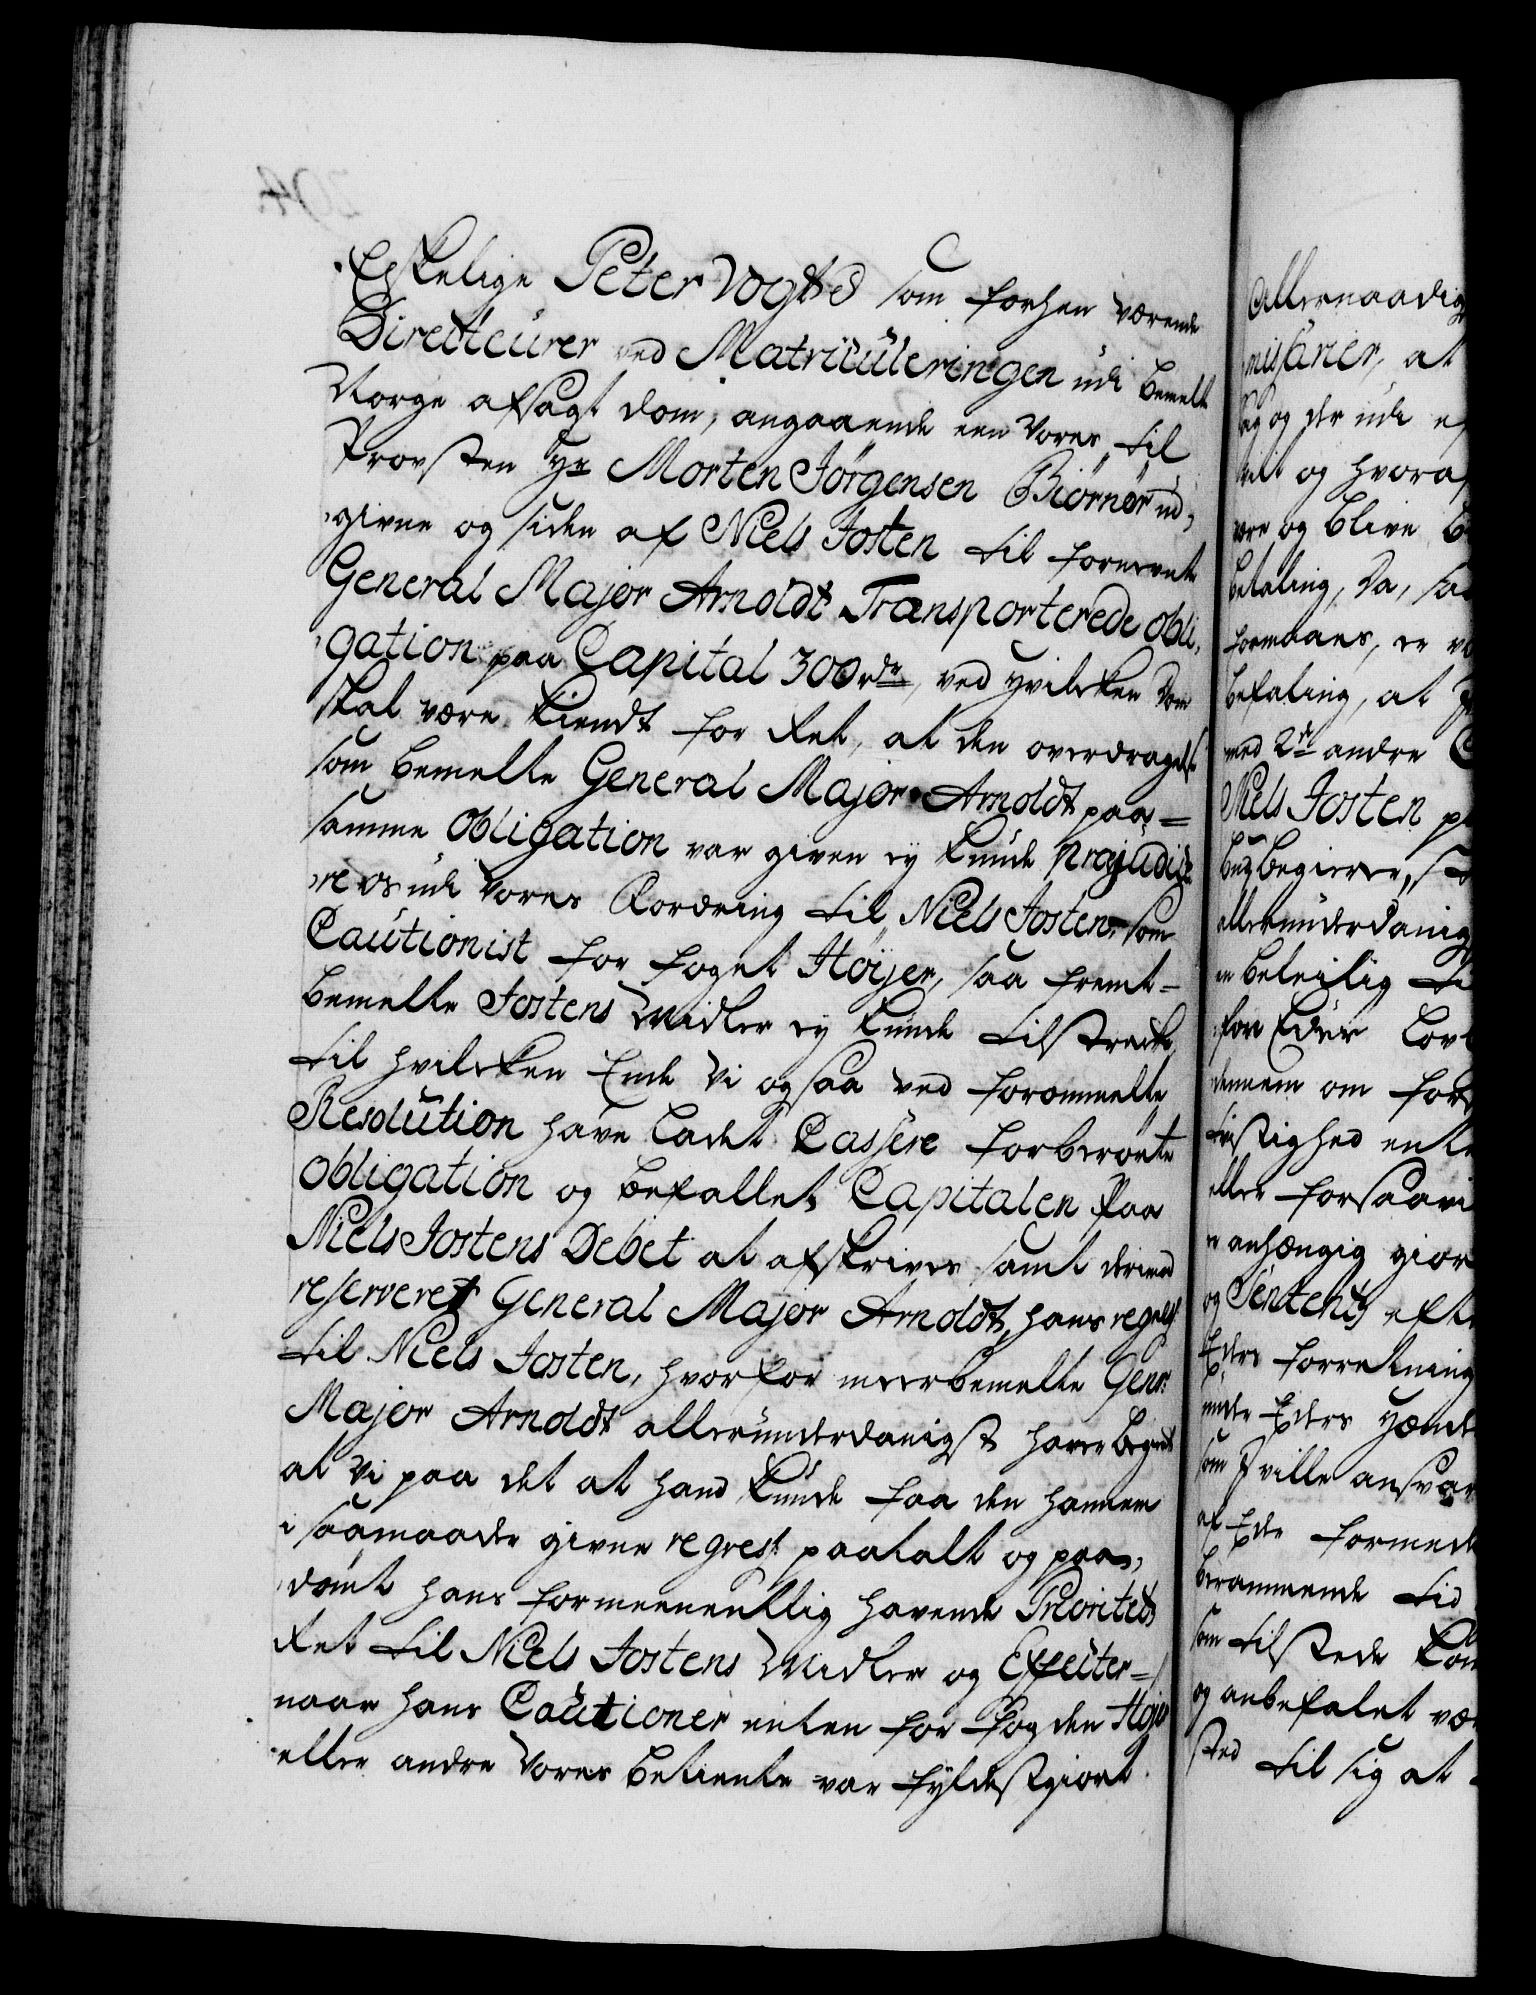 Elskelige Peter Vogts som forhen værende
Directeurer ved Matriculeringen udi bemelte
Norge afsagt dom, angaaende een Vores til
Provsten Hr Morten Jörgensen Biörnör ud,
givne og siden af Niels Josten til fornevnte
General Major Arnoldt Transporterede obli,
gation paa Capital 300 rdr, ved hvilcken dom
skal være kiendt for Ret, at den overdragelse
som bemelte General Major Arnoldt paa=
samme Obligation var given ey kunde præjudice
re os udi Vores Fordring til Niels Josten, som
Cautionist for foget Höyer, saa fremt=
bemelte Jostens Midler ey kunde tilstrecke
til hvilcken Ende Vi ogsaa ved forommelte
Resolution have ladet Cassere forberörte
obligation og befallet Capitalen paa
Niels Jostens Debet at afskrives samt derimod
reserveret General Major Arnoldt, hans regress
til Niels Josten, hvorfor meerbemelte Genr:
Major Arnoldt allerunderdanigst haver begiert
at Vi paa det at hand kunde faa den hannem
i saamaade givne regress paatalt og paa,
dömt hans formeenentlig havende Prioritets
Ret til Niels Jostens Midler og Effecter=
naar hans Cautioner enten for fogden Höyer
eller andre Vores betiente var fyldestgiort
Allernaadigst
missarier, at
sag og der udi
til og hvoraf
være og blive
betaling, Da, saa
formaaes, er vo
befaling, at
med 2de andre C
Niels Josten p
begiere,
allerunderdanig
beleilig ti
for Eder lov
dennem om for
tistighed ent
eller forsaavi
anhængig giør
og Sentents eft
Eders forretning
under Eders Hænde
som I ville ansvar
af Eder formede
berammende tid
som tilstede kom
og anbefalet væ
sted til sig at